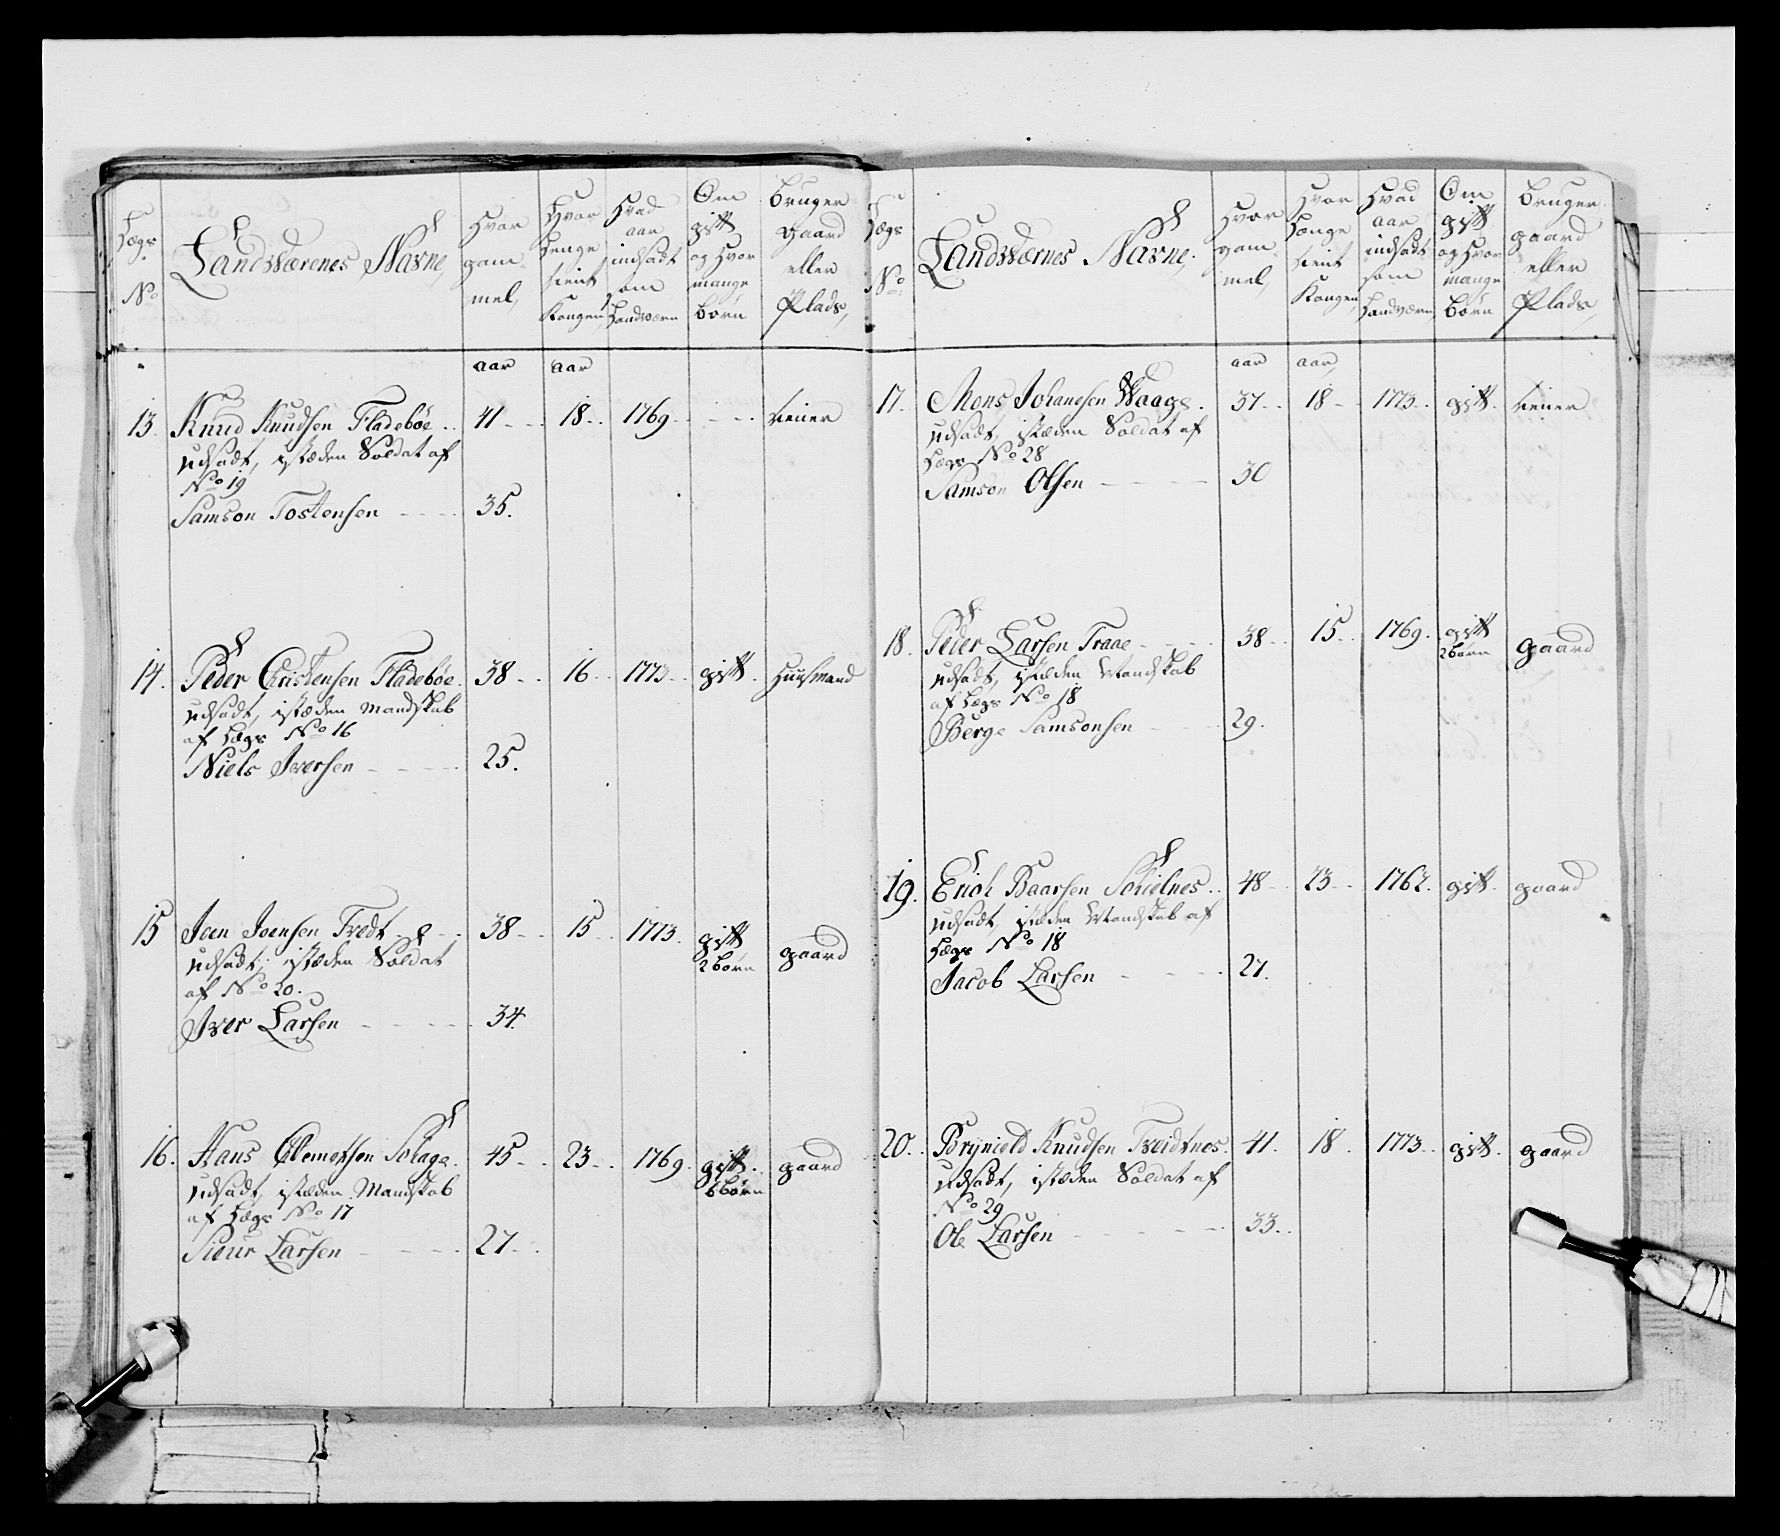 Lægs No
Landværenes Navne,
Hvor gam mel,
Hvor Lenge tient Kongen,
Hvad aar indsadt som Landværn
Om gift og hvor mange børn
bruger gaard eller Plads,
aar aar
13. Knud Knudsen Fladebøe .. 41 - - 18 - - 1769 - - - - - tiener
udsadt, isteden Soldat af
No 19
Samson Tostensen - - - - 35.
14. Peder Christensen Fladebøe. 38 - - 16 - - 1773 - - gift. Huusmand
udsadt, isteden Mandskab
af Lægs No 16
Niels Iversen - - - - 25.
15 Joen Joensen Tvedt - - - 38 - - 15 - - 1773. gift 2 børn gaard
udsadt, isteden Soldat
af No 20.
Iver Larsen - - - - 34.
16. Hans Clemetsen Schage. 45 - - 23 - - 1769. gift. 6 børn gaard
udsadt, isteden Mandskab
af Lægs No 17
Siour Larsen - - - - 27 - -
Lægs No
Landværnes Navne.
Hvor gam mel,
Hvor Længe tient Kongen,
Hvad aar indsadt som Landværn,
Om gift og hvor mange børn
bruger gaard eller Plads,
aar aar,
17. Mons Johanesen Waage. 37 - - 18 - - 1773 - - gift. tiener
udsadt, isteden Soldat af
Lægs No 28
Samson Olsen - - - - 30
18. Peder Larsen Traae - - - 38 - - 15 - - 1769. gift 2 børn gaard
udsadt, isteden Mandskab
af Lægs No 18
Berge Samsonsen - - - 29.
19. Erich Baarsen Schielnes .. 48 - - 23 - - 1762. gift. gaard
udsadt, isteden Mandskab af
Lægs No 18
Jacob Larsen - - - - 27.
20. Brÿnield Knudsen Tveidtnes. 41. 18. 1773 - - gift. gaard
udsadt, isteden Soldat af
No 29
Ole Larsen - - - - 33. .